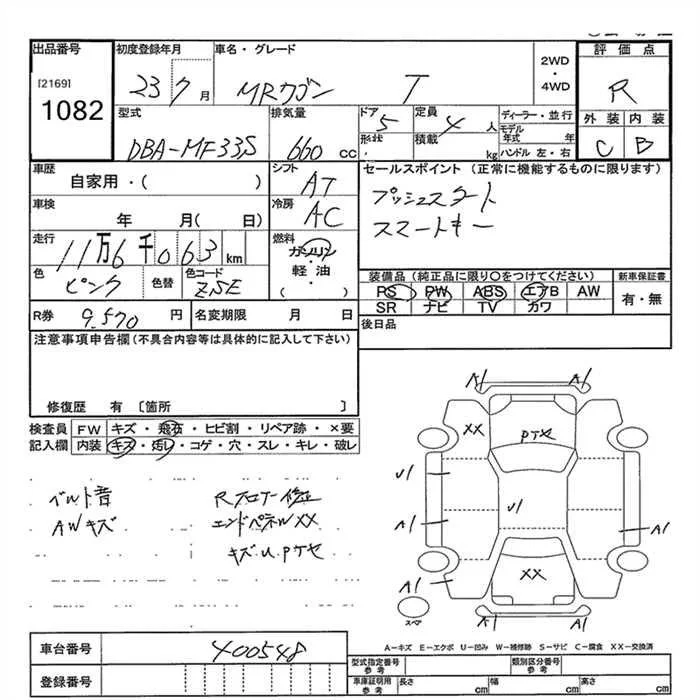 出品番号
[2169]
1082
初度登録年月
23 7月
車名・グレード
MRワゴン T
2WD
・
4WD
評価点
R
外装 内装
C B
型式
DBA-MF33S
排気量
660 cc
ドア 5
形状
・
定員 4 人
積載 kg
ディーラー・並行
モデル年式 年
ハンドル 左・右
車歴
自家用・( )
シフト
AT
セールスポイント (正常に機能するものに限ります)
プッシュスタート
スマートキー
車検
年 月( 日)
冷房
AC
走行
11万6千063km
燃料
ガソリン
軽油
・( )
色
ピンク
色替
色コード
ZSE
装備品(純正品に限り○をつけてください)
PS PW ABS エアB AW
SR ナビ TV カワ
新車保証書
有・無
R券 9,570 円
名変期限 月 日
後日品
注意事項申告欄(不具合内容等は具体的に記入して下さい)
修復歴 有 〔箇所 〕
検査員記入欄
FW キズ・飛石・ヒビ割・リペア跡・×要
内装 キズ・汚レ・コゲ・穴・スレ・キレ・破レ
ベルト音
AWキズ
Rフロアー修正
エンドパネルXX
キズ U PTセ
A1 A1
XX
PTセ
U1
U1
A1
A1
XX
A1
A1 A1
スペア
A-キズ E-エクボ U-凹み W-補修跡 S-サビ C-腐食 XX-交換済
車台番号
400548
登録番号
型式指定番号
参考
類別区分番号
参考
車庫証明用
参考
長さ cm
幅 cm
高さ cm